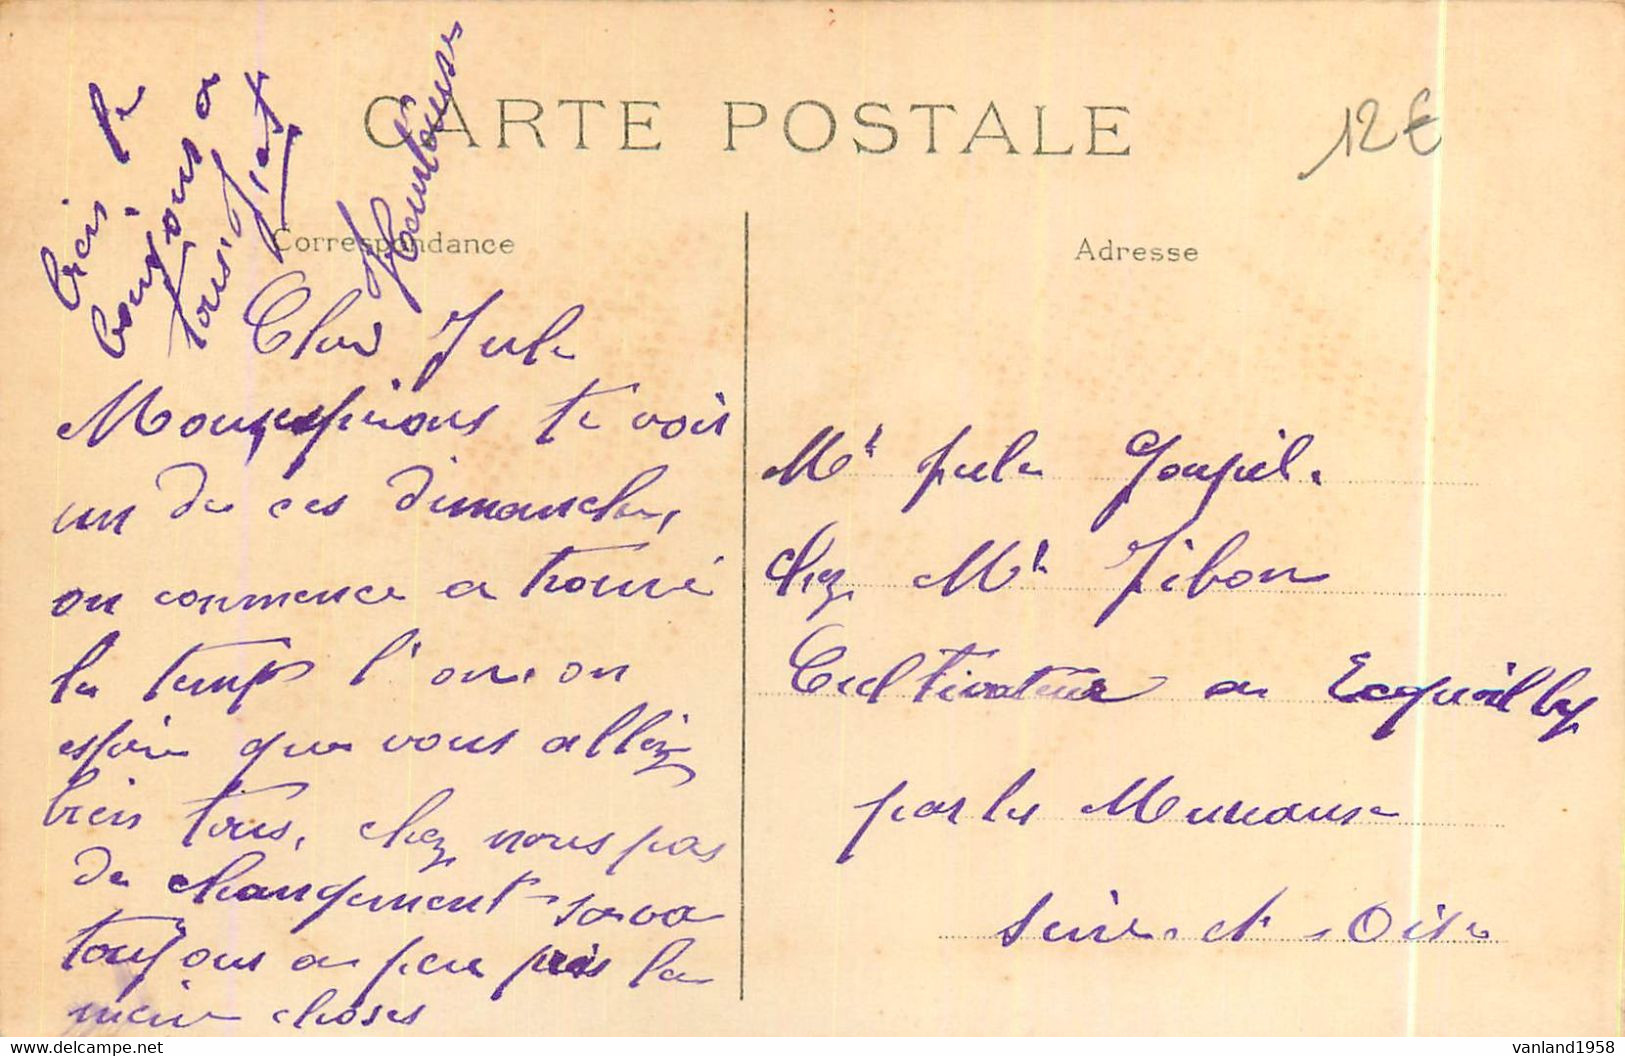 CARTE POSTALE
12€
Correspondance
Adresse
Cher Jule
Nous espérions te voir
un de ces dimanche,
on commence a trouvé
le temps l'on, on
espère que vous alliez
bien tous, chez nous pas
de changement sa va
toujour a peu près la
même choses
bien le
bonjour a
tous.
Mr Jule Goupil.
chez Mr Gibon
Cultivateur a Ecquevilly
par les Mureaux
Seine et Oise
vanland1958